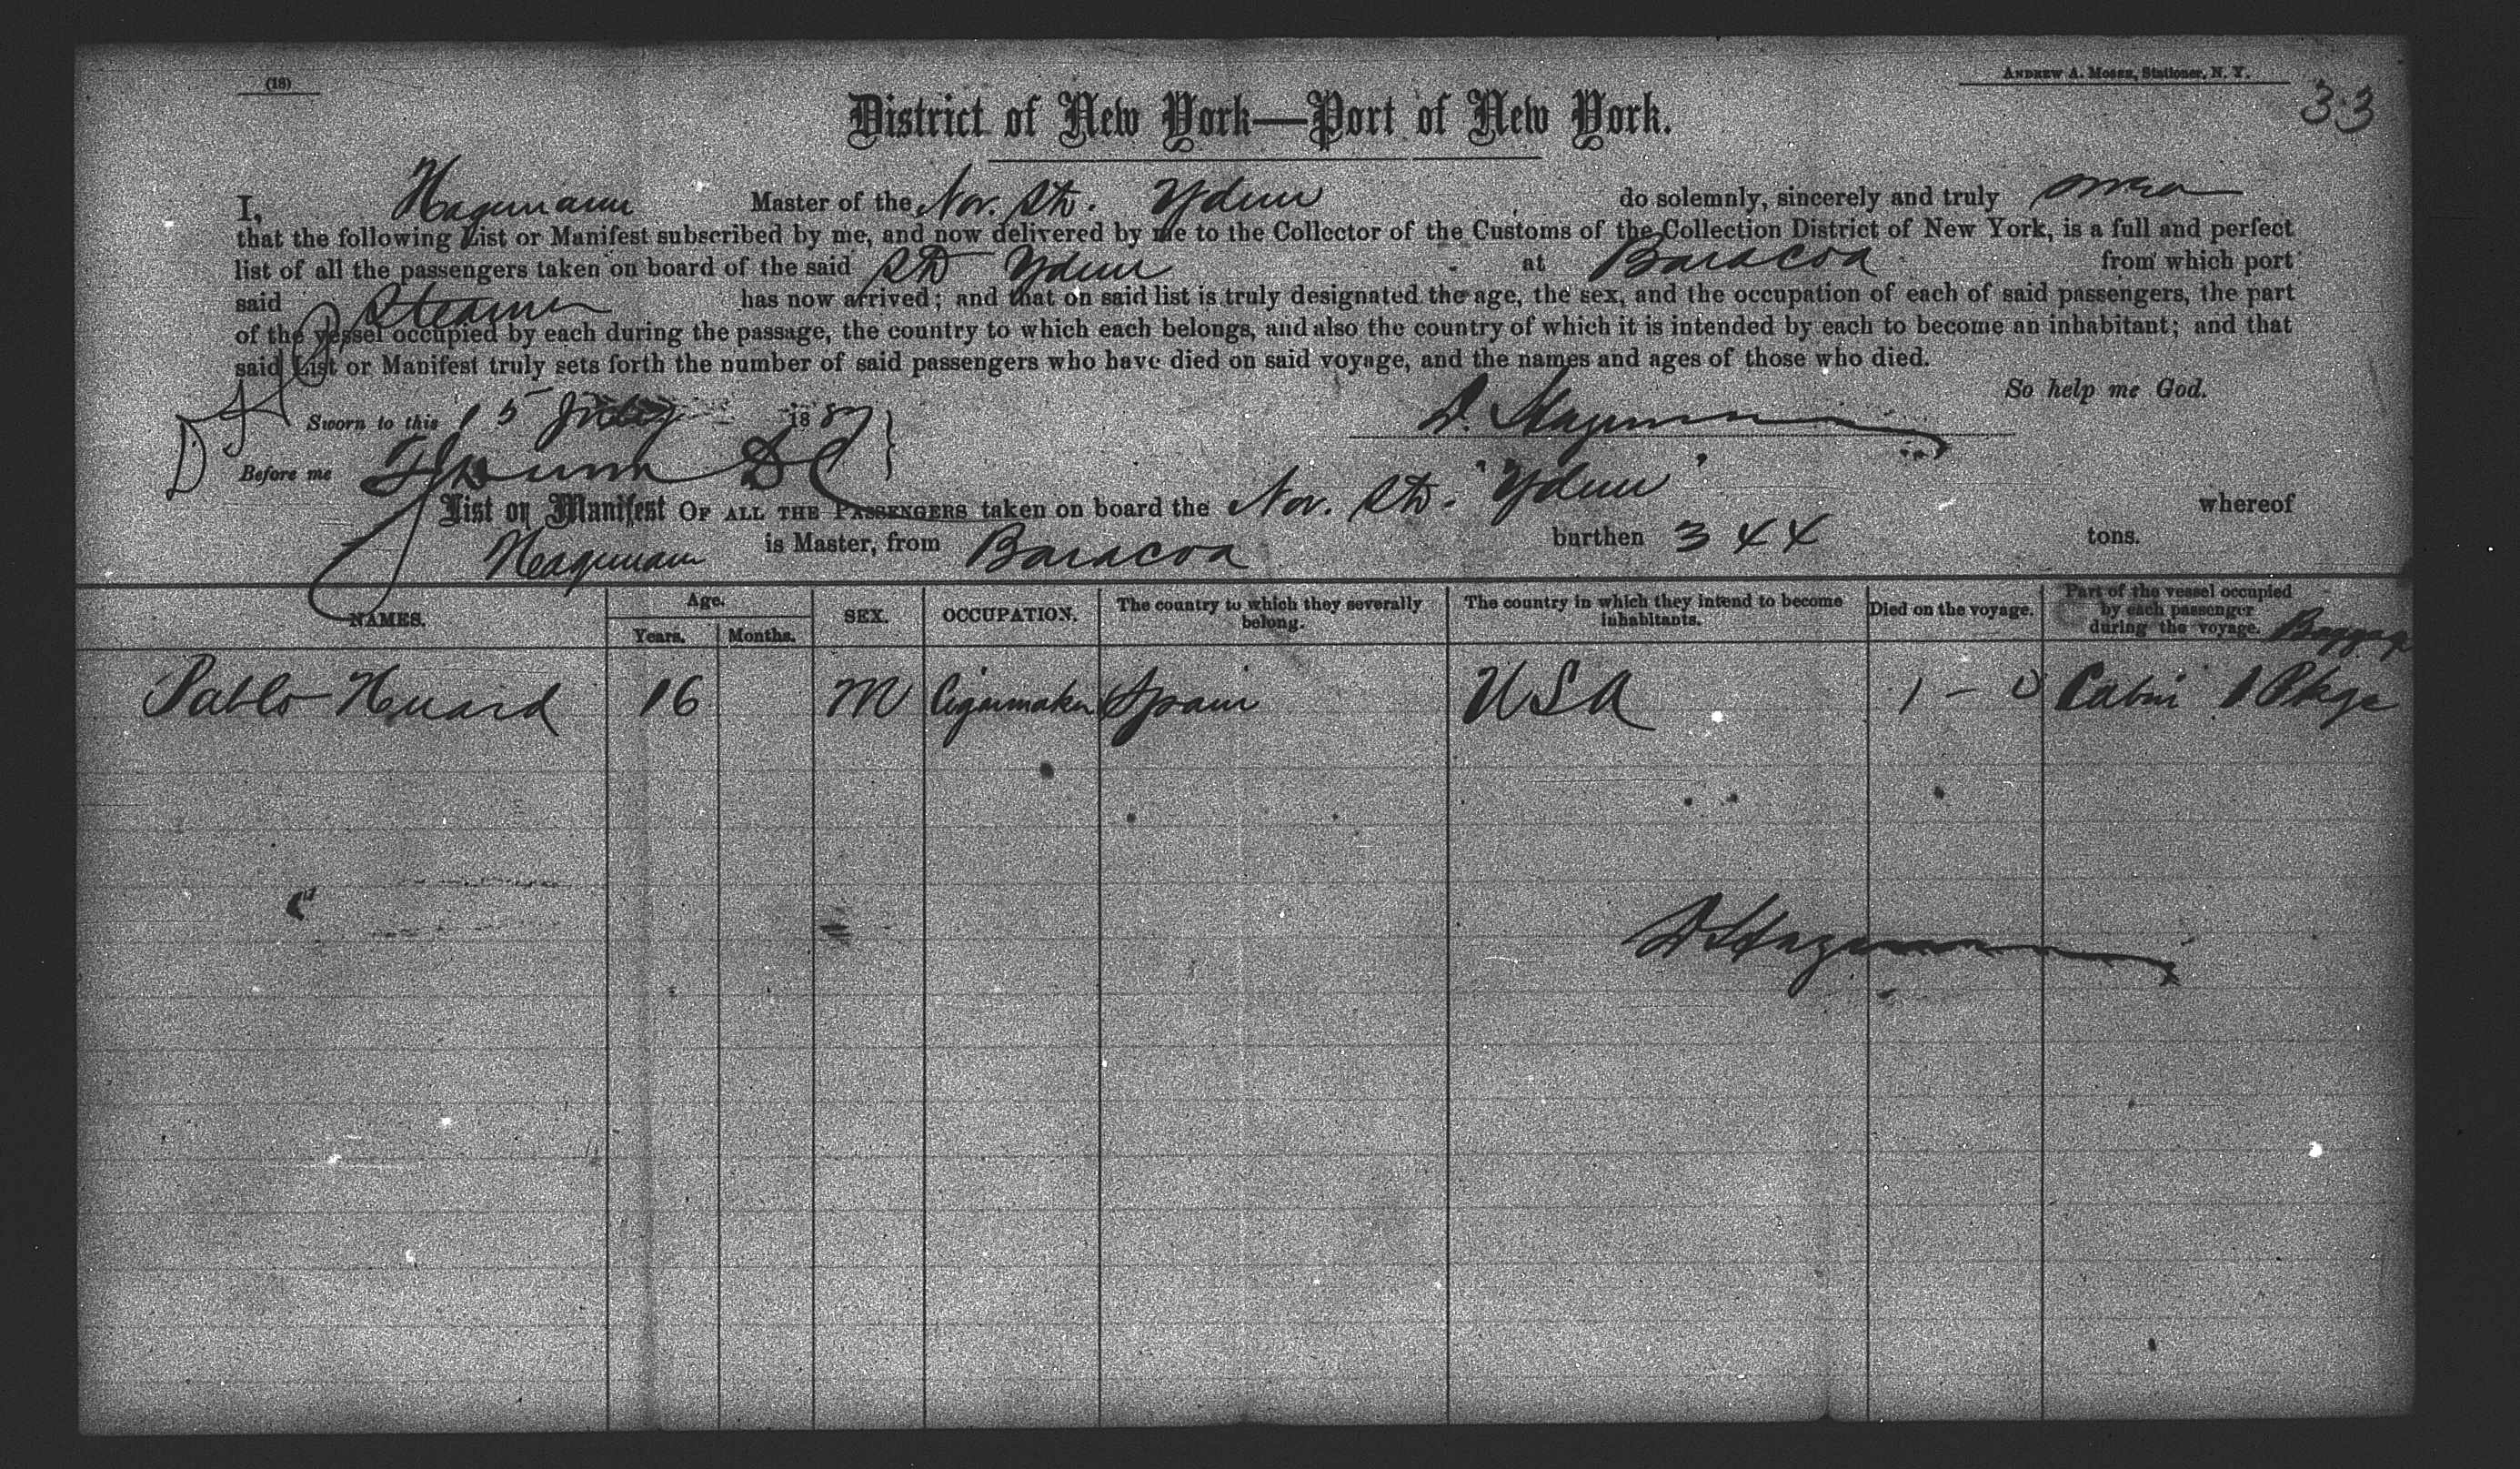 (18)
ANDREW A. MOSES, Stationer, N. Y.
33
District of New York—Port of New York.
I, Hagemann Master of the Nor. Str. Ydun do solemnly, sincerely and truly swear
that the following List or Manifest subscribed by me, and now delivered by me to the Collector of the Customs of the Collection District of New York, is a full and perfect
list of all the passengers taken on board of the said Str Ydun at Baracoa from which port
said Steamer has now arrived; and that on said list is truly designated the age, the sex, and the occupation of each of said passengers, the part
of the vessel occupied by each during the passage, the country to which each belongs, and also the country of which it is intended by each to become an inhabitant; and that
said List or Manifest truly sets forth the number of said passengers who have died on said voyage, and the names and ages of those who died.
So help me God.
Sworn to this 15 July 1887 D. Hagemann
Before me
List or Manifest OF ALL THE PASSENGERS taken on board the Nor. Str. "Ydun" whereof
Hagemann is Master, from Baracoa burthen 344 tons.
NAMES. Age. Years. Months. SEX. OCCUPATION. The country to which they severally belong. The country in which they intend to become inhabitants. Died on the voyage. Part of the vessel occupied by each passenger during the voyage. Baggage
Pablo 16 M Cigarmaker Spain USA 1 - 0 Cabin 1 Pkge
D Hagemann